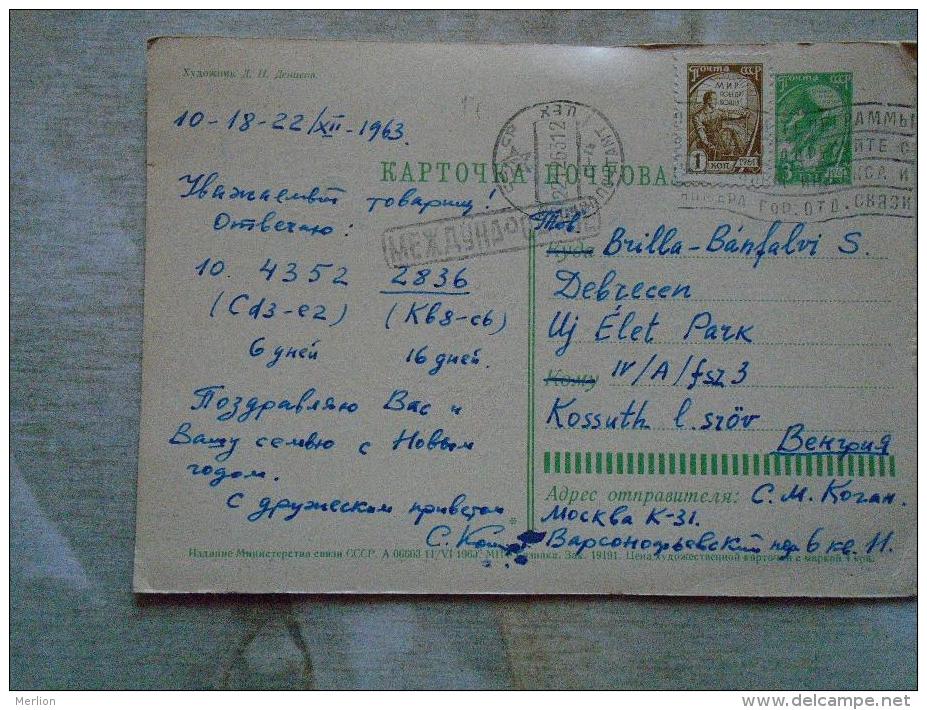 Художник Л. Н. Денисов.
10-18-22/XII-1963.
КАРТОЧКА ПОЧТОВАЯ
Уважаемый товарищ!
Отвечаю:
10. 4352 2836
(Cd3-e2) (Kb8-c6)
6 дней 16 дней.
Поздравляю Вас и
Вашу семью с Новым
годом.
С дружеским приветом
С. Коган
Издание Министерства связи СССР. А 06603 11/VI 1963. Зак. 19191. Цена художественной карточки с маркой 4 коп.
Почта СССР
МИР
1 КОП 1961
Почта СССР
МЕЖДУНАРОДНОЕ
ГОР. ОТД. СВЯЗИ
Тов.
Куда Brilla-Bánfalvi S.
Debrecen
Uj Élet Park
Кому IV/A/fsz 3
Kossuth l. szöv
Венгрия
Адрес отправителя: С. М. Коган.
Москва К-31.
Варсонофьевский пер 6 кв. 11.
Merlion
www.delcampe.net